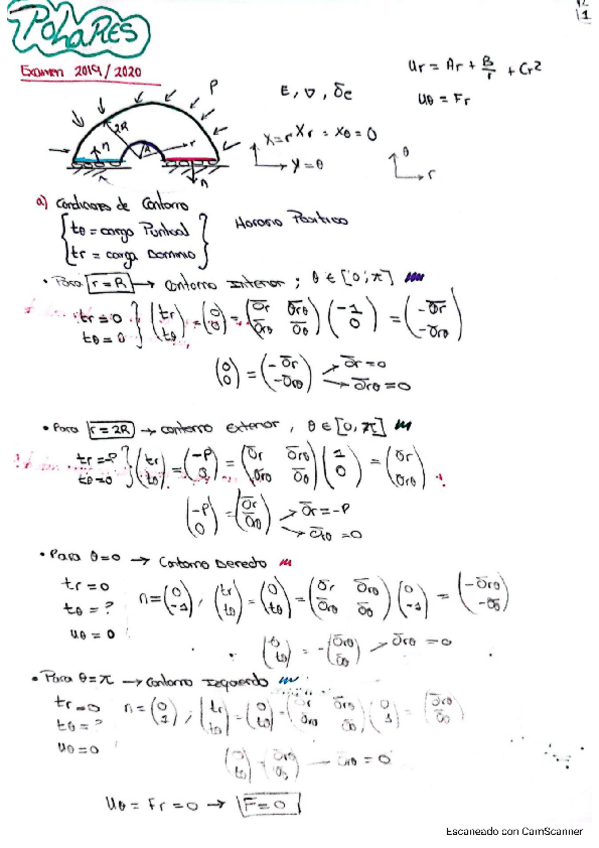 POLARES
1
Examen 2019/2020
P
E, ν, σe
ur = Ar + B/r + Cr²
uθ = Fr
2R
n
r
R
n
x=r
Xr = Xθ = 0
y=θ
θ
r
a) Condiciones de Contorno
tθ = carga Puntual
tr = carga Dominio
Horario Positivo
• Para r=R → Contorno Interior ; θ ∈ [0;π]
tr=0
tθ=0
(tr tθ) = (0 0) = (σr σrθ σrθ σθ) (-1 0) = (-σr -σrθ)
(0 0) = (-σr -σrθ) → σr=0 → σrθ=0
• Para r=2R → contorno exterior, θ ∈ [0,π]
tr=-P
tθ=0
(tr tθ) = (-P 0) = (σr σrθ σrθ σθ) (1 0) = (σr σrθ)
(-P 0) = (σr σrθ) → σr=-P → σrθ=0
• Para θ=0 → Contorno Derecho
tr=0
tθ=?
uθ=0
n=(0 -1), (tr tθ) = (0 tθ) = (σr σrθ σrθ σθ) (0 -1) = (-σrθ -σθ)
(0 tθ) = -(σrθ σθ) → σrθ = 0
• Para θ=π → Contorno Izquierdo
tr=0
tθ=?
uθ=0
n=(0 1), (tr tθ) = (0 tθ) = (σr σrθ σrθ σθ) (0 1) = (σrθ σθ)
(0 tθ) = (σrθ σθ) → σrθ = 0
uθ = Fr = 0 → F=0
Escaneado con CamScanner